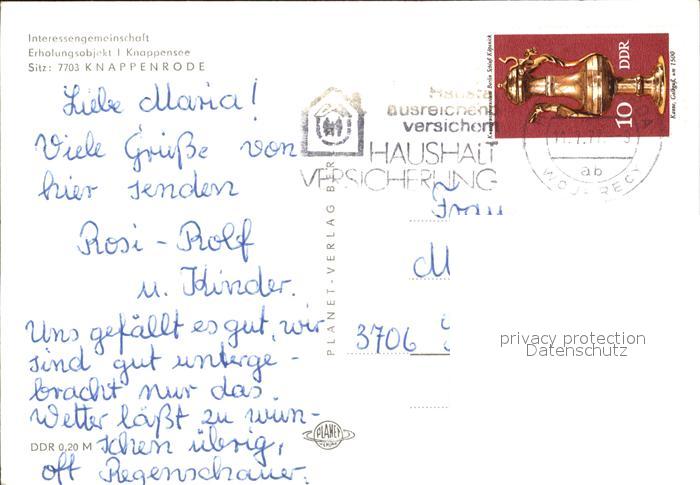 Interessengemeinschaft
Erholungsobjekt I Knappensee
Sitz: 7703 KNAPPENRODE
Liebe Maria!
Viele Grüße von
hier senden
Rosi - Rolf
u. Kinder.
Uns gefällt es gut, wir
sind gut unterge-
bracht nur das
Wetter läßt zu wün-
schen übrig,
oft Regenschauer.
DDR 0,20 M
PLANET-VERLAG
PLANET
ausreichend
versichert
HAUSHALT
VERSICHERUNG
DDR
10
Kanne, Gelbguß, um 1500
ab
Frau
M
3706
privacy protection
Datenschutz